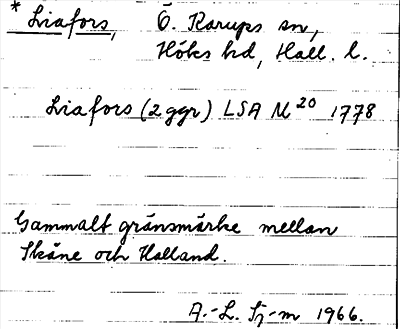 * Liafors, Ö. Karups sn,
Höks hd, Hall. l.
Liafors (2 ggr) LSA M 20 1778
Gammalt gränsmärke mellan
Skåne och Halland.
A.-L. Tj-m 1966.